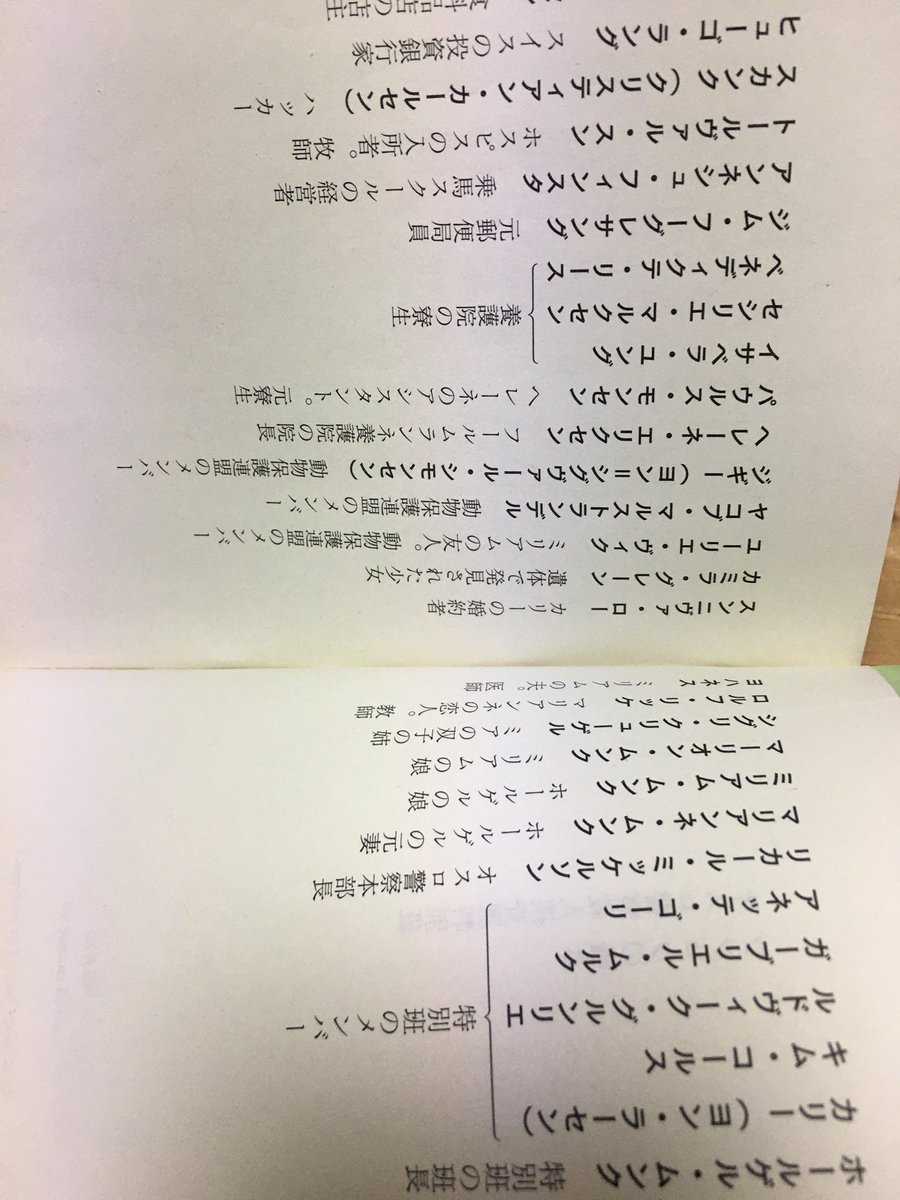 ホールゲル・ムンク　特別班の班長
カリー（ヨン・ラーセン）
キム・コールス
ルドヴィーク・グルンリエ
ガーブリエル・ムルク
アネッテ・ゴーリ
特別班のメンバー
リカール・ミッケルソン　オスロ警察本部長
マリアンネ・ムンク　ホールゲルの元妻
ミリアム・ムンク　ホールゲルの娘
マーリオン・ムンク　ミリアムの娘
シグリ・クリューゲル　ミアの双子の姉
ロルフ・リッケ　マリアンネの恋人。教師
ヨハネス　ミリアムの夫。医師
スンニヴァ・ロー　カリーの婚約者
カミラ・グレーン　遺体で発見された少女
ユーリエ・ヴィク　ミリアムの友人。動物保護連盟のメンバー
ヤコブ・マルストランデル　動物保護連盟のメンバー
ジギー（ヨン＝シグヴァール・シモンセン）　動物保護連盟のメンバー
ヘレーネ・エリクセン　フールムランネ養護院の院長
パウルス・モンセン　ヘレーネのアシスタント。元寮生
イサベラ・ユング
セシリエ・マルクセン
ベネディクテ・リース
養護院の寮生
ジム・フーグレサング　元郵便局員
アンネシュ・フィンスタ　乗馬スクールの経営者
トールヴァル・スン　ホスピスの入所者。牧師
スカンク（クリスティアン・カールセン）　ハッカー
ヒューゴ・ラング　スイスの投資銀行家
料品店の店主